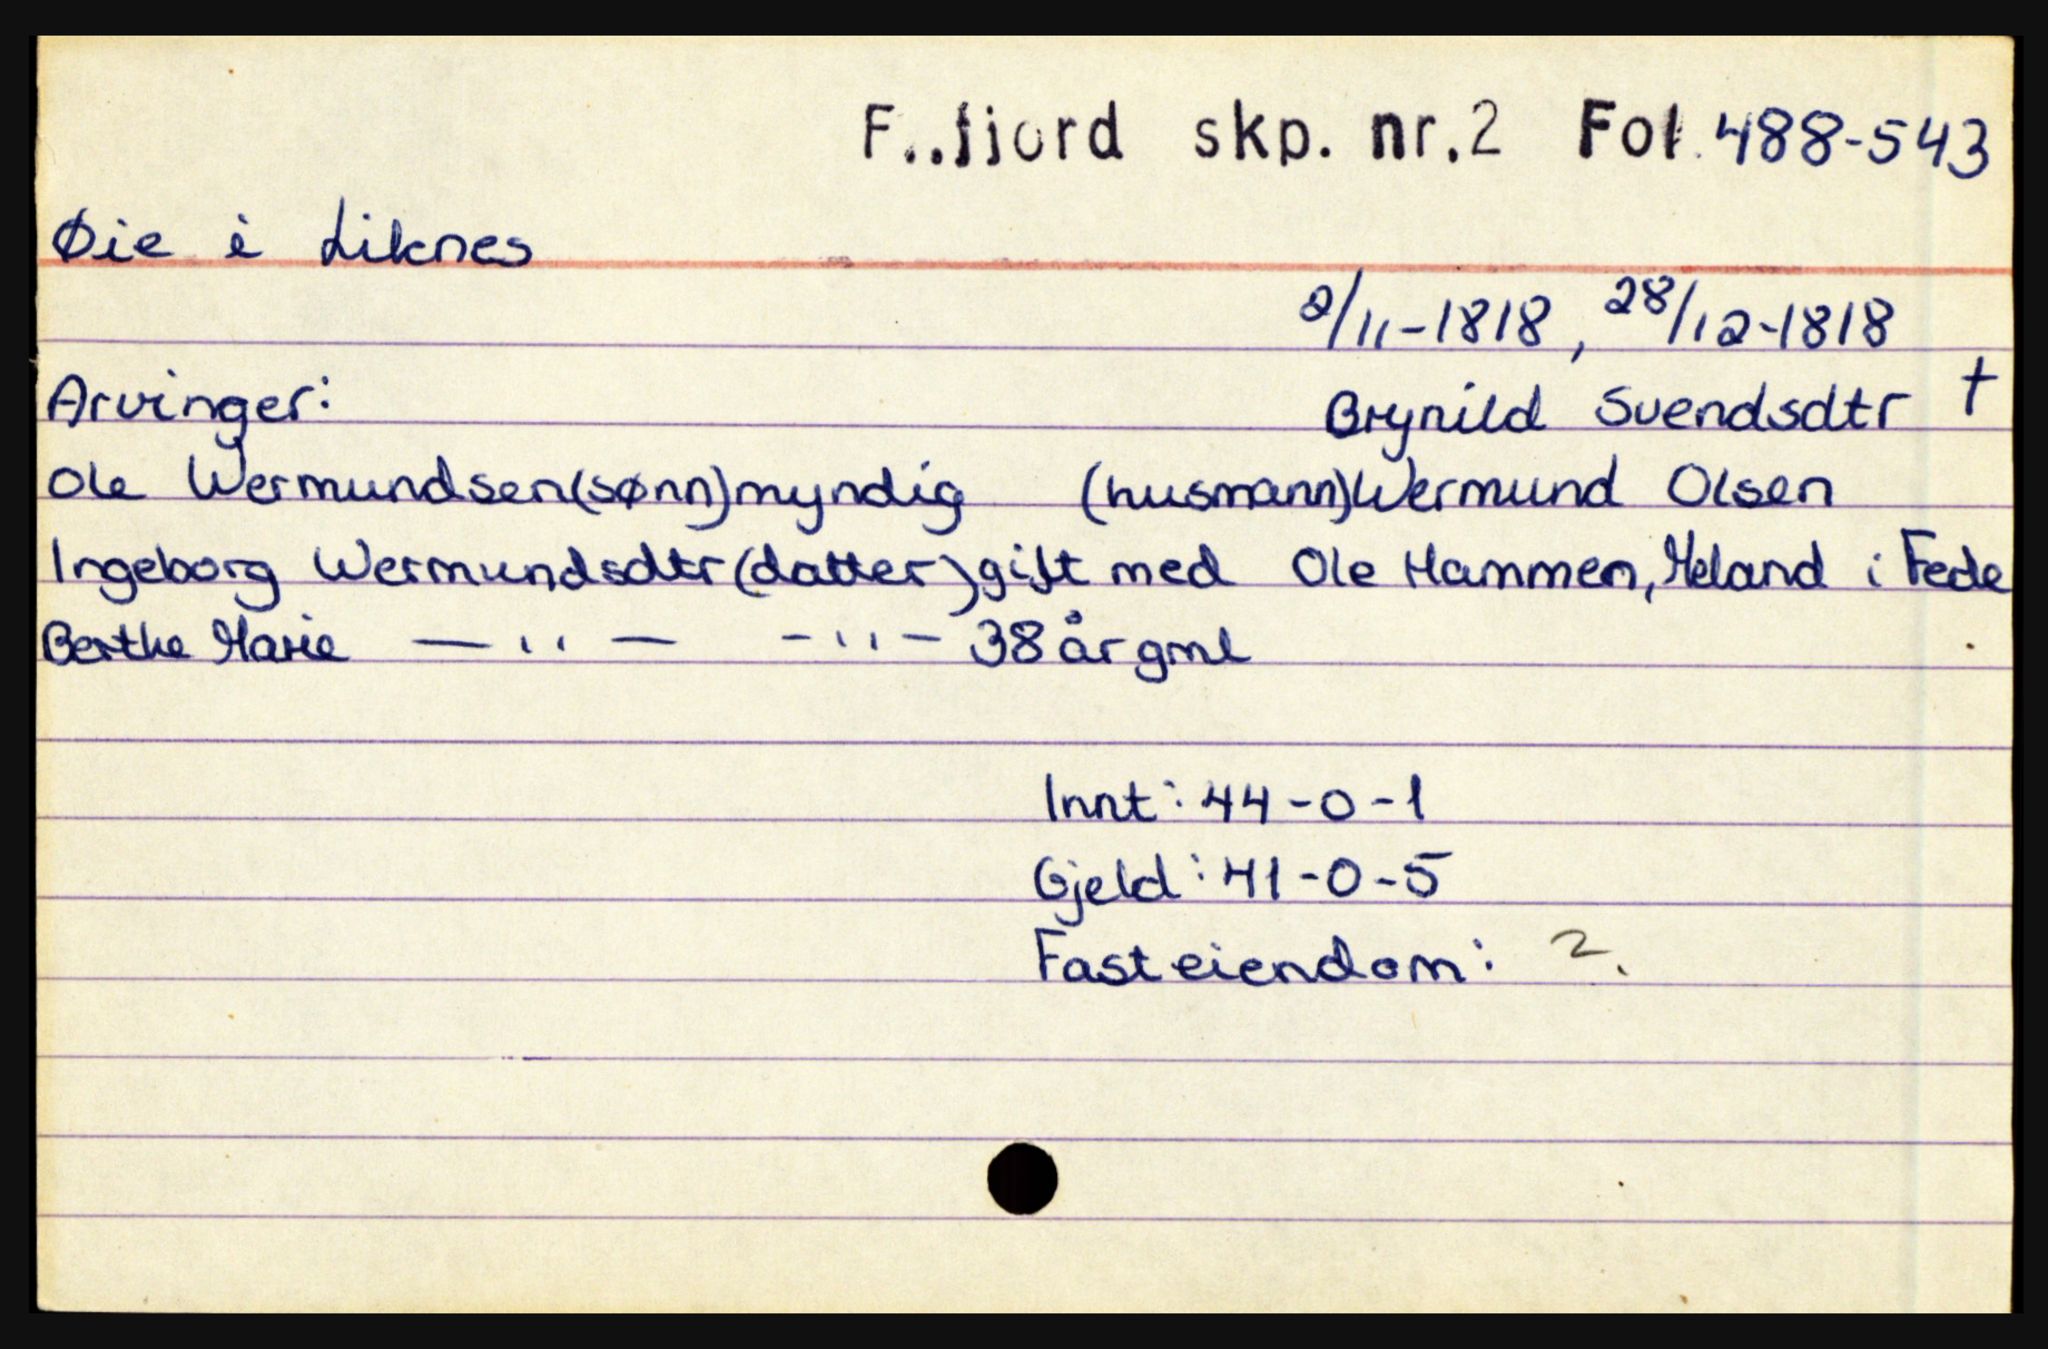 F..fjord skp. nr.2 Fol. 488-543
Øie i Liknes
2/11-1818, 28/12-1818
Arvinger: Brynild Svendsdtr †
Ole Wermundsen(sønn)myndig (husmann)Wermund Olsen
Ingeborg Wermundsdtr(datter)gift med Ole Hammen, Meland i Fede
Berthe Marie — '' — - '' - 38 år gml
Innt: 44-0-1
Gjeld: 41-0-5
Fasteiendom: 2.